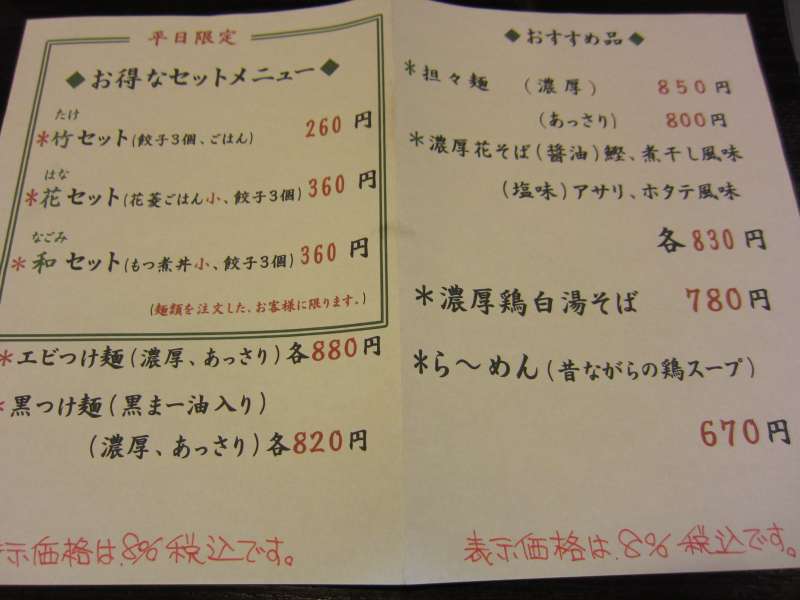 平日限定
◆お得なセットメニュー◆
たけ
*竹セット(餃子3個、ごはん) 260円
はな
*花セット(花菱ごはん小、餃子3個) 360円
なごみ
*和セット(もつ煮丼小、餃子3個) 360円
(麺類を注文した、お客様に限ります。)
*エビつけ麺(濃厚、あっさり)各880円
*黒つけ麺(黒まー油入り)
(濃厚、あっさり)各820円
示価格は、8%税込です。
◆おすすめ品◆
*担々麺 (濃厚) 850円
(あっさり) 800円
*濃厚花そば(醤油)鰹、煮干し風味
(塩味)アサリ、ホタテ風味
各830円
*濃厚鶏白湯そば 780円
*ら〜めん(昔ながらの鶏スープ)
670円
表示価格は、8%税込です。